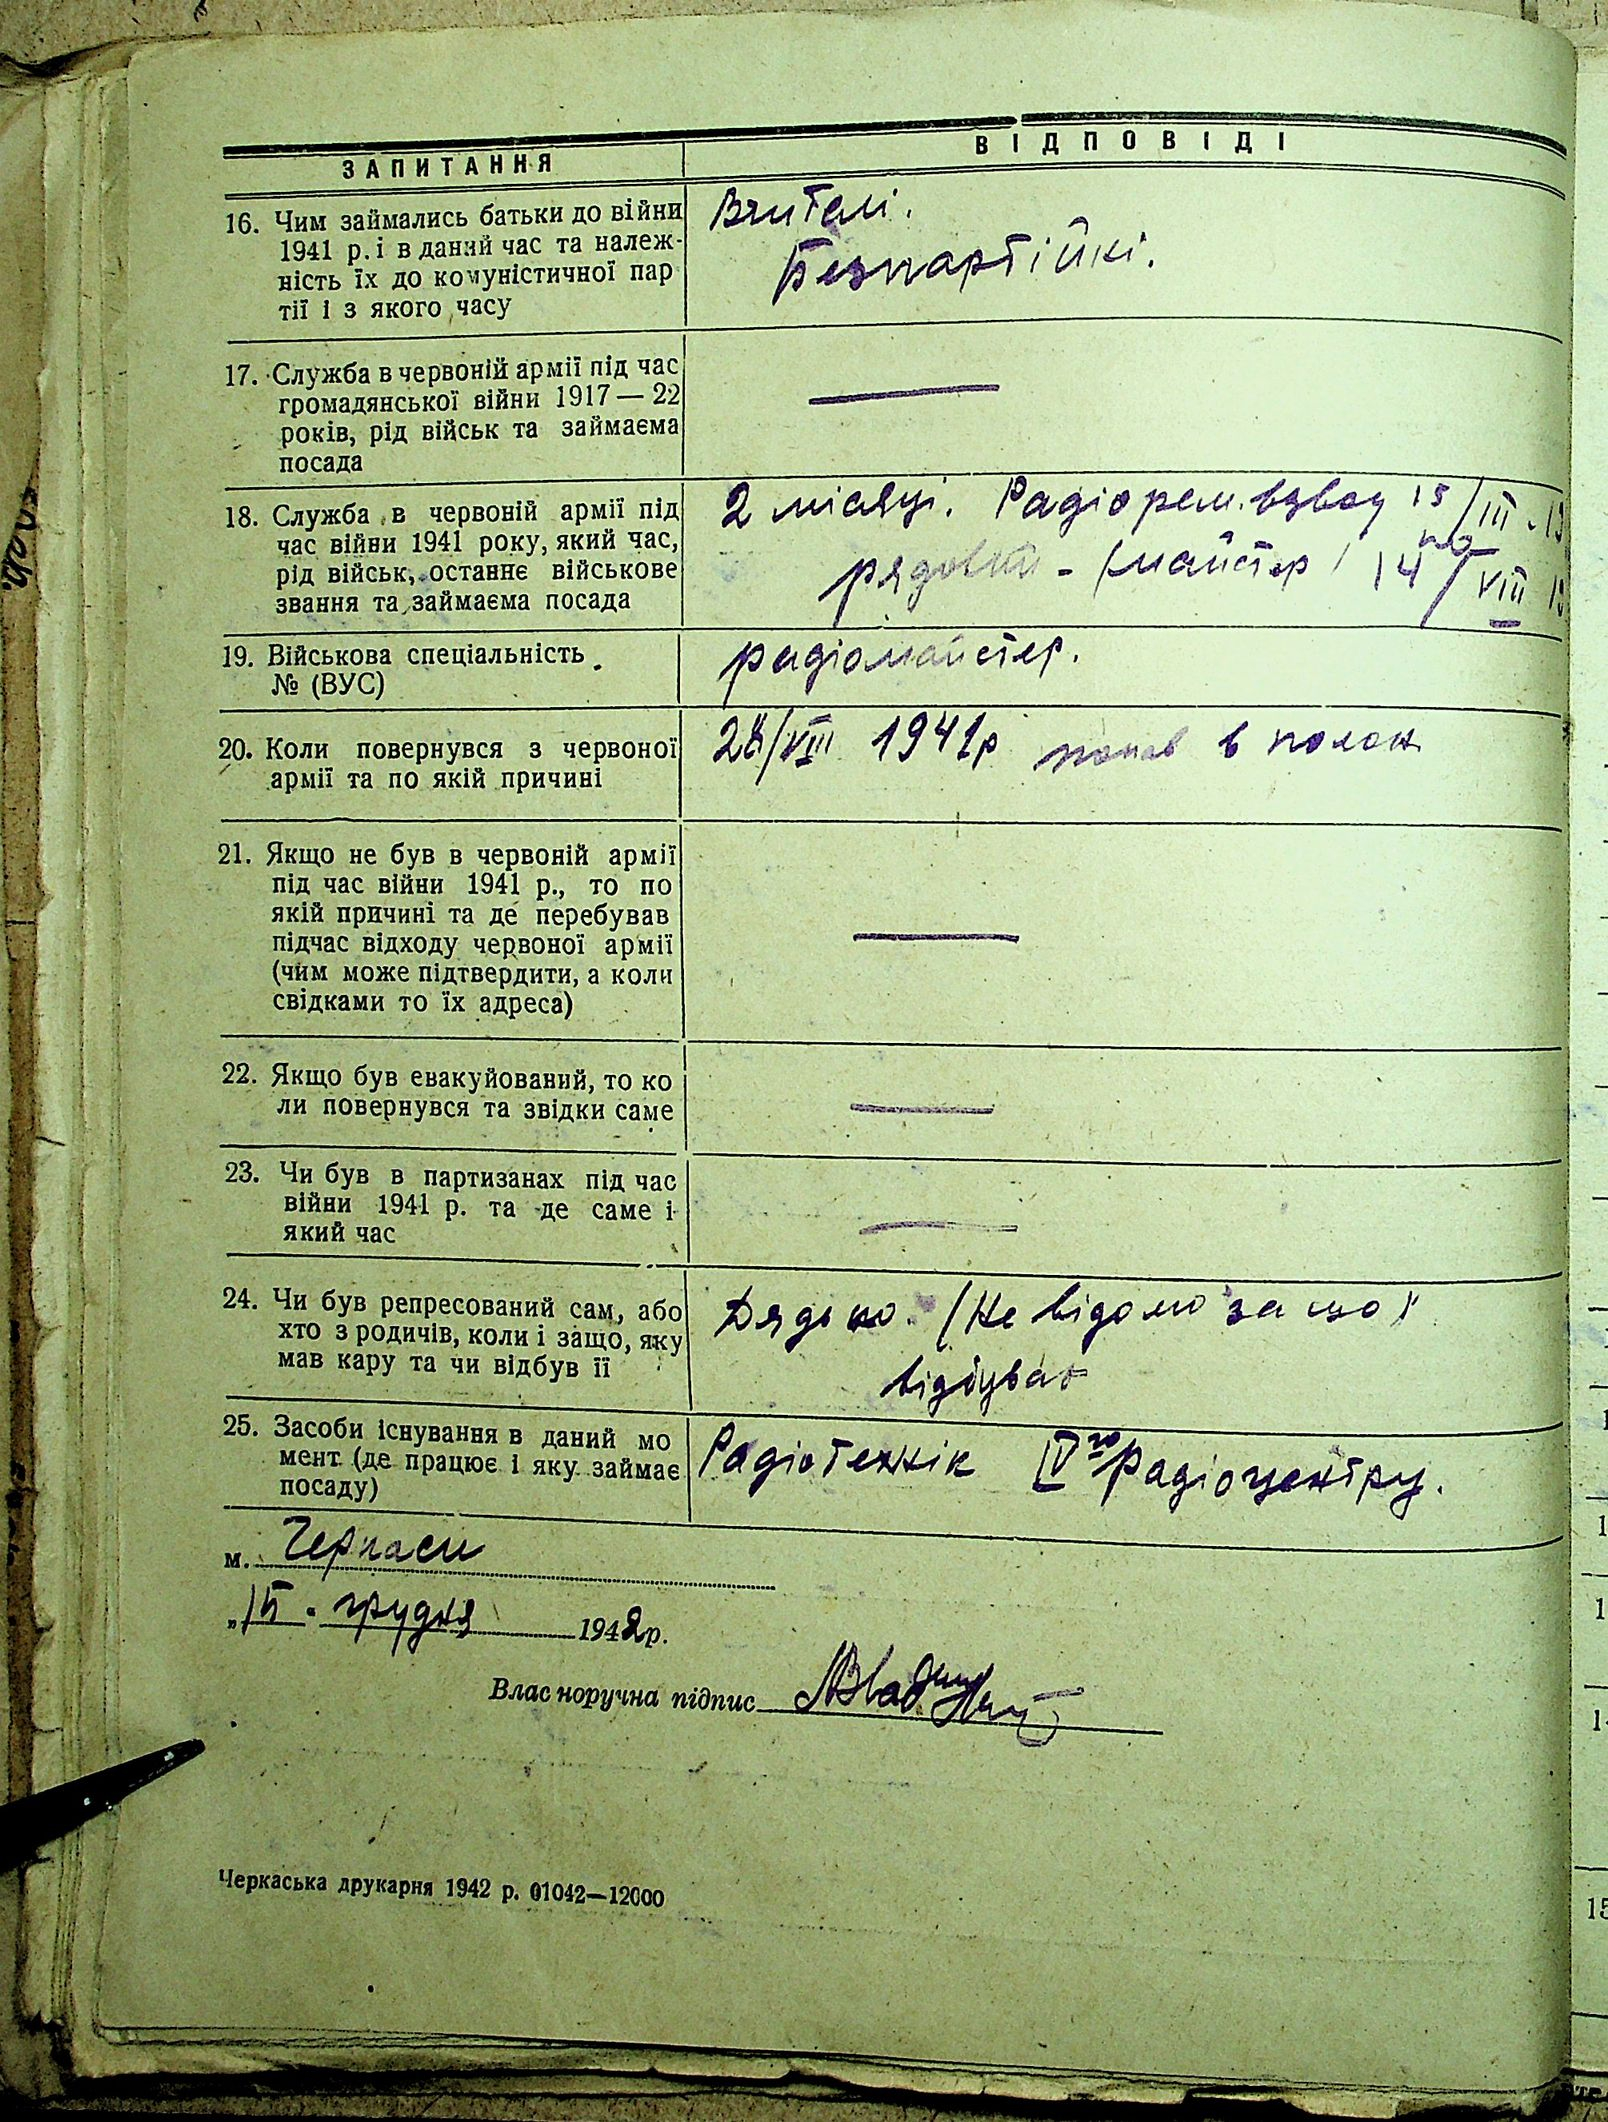 ЗАПИТАННЯ
ВІДПОВІДІ
16. Чим займались батьки до війни
1941 р. і в даний час та належ-
ність їх до комуністичної пар
тії і з якого часу
Вчителі.
Безпартійні.
17. Служба в червоній армії під час
громадянської війни 1917 — 22
років, рід військ та займаєма
посада
18. Служба в червоній армії під
час війни 1941 року, який час,
рід військ, останнє військове
звання та займаєма посада
2 місяці. Радіорем. взвод 15/III - 19
рядовий - (майстер) 14/VIII 19
19. Військова спеціальність
№ (ВУС)
радіомайстер.
20. Коли повернувся з червоної
армії та по якій причині
28/VIII 1941р попав в полон
21. Якщо не був в червоній армії
під час війни 1941 р., то по
якій причині та де перебував
підчас відходу червоної армії
(чим може підтвердити, а коли
свідками то їх адреса)
22. Якщо був евакуйований, то ко
ли повернувся та звідки саме
23. Чи був в партизанах під час
війни 1941 р. та де саме і
який час
24. Чи був репресований сам, або
хто з родичів, коли і защо, яку
мав кару та чи відбув її
Дядько. (Не відомо за що)
відбуває
25. Засоби існування в даний мо
мент (де працює і яку займає
посаду)
Радіотехнік IV го Радіоцентру.
м. Черкаси
" грудня 1942р.
Власноручна підпис
Черкаська друкарня 1942 р. 01042—12000